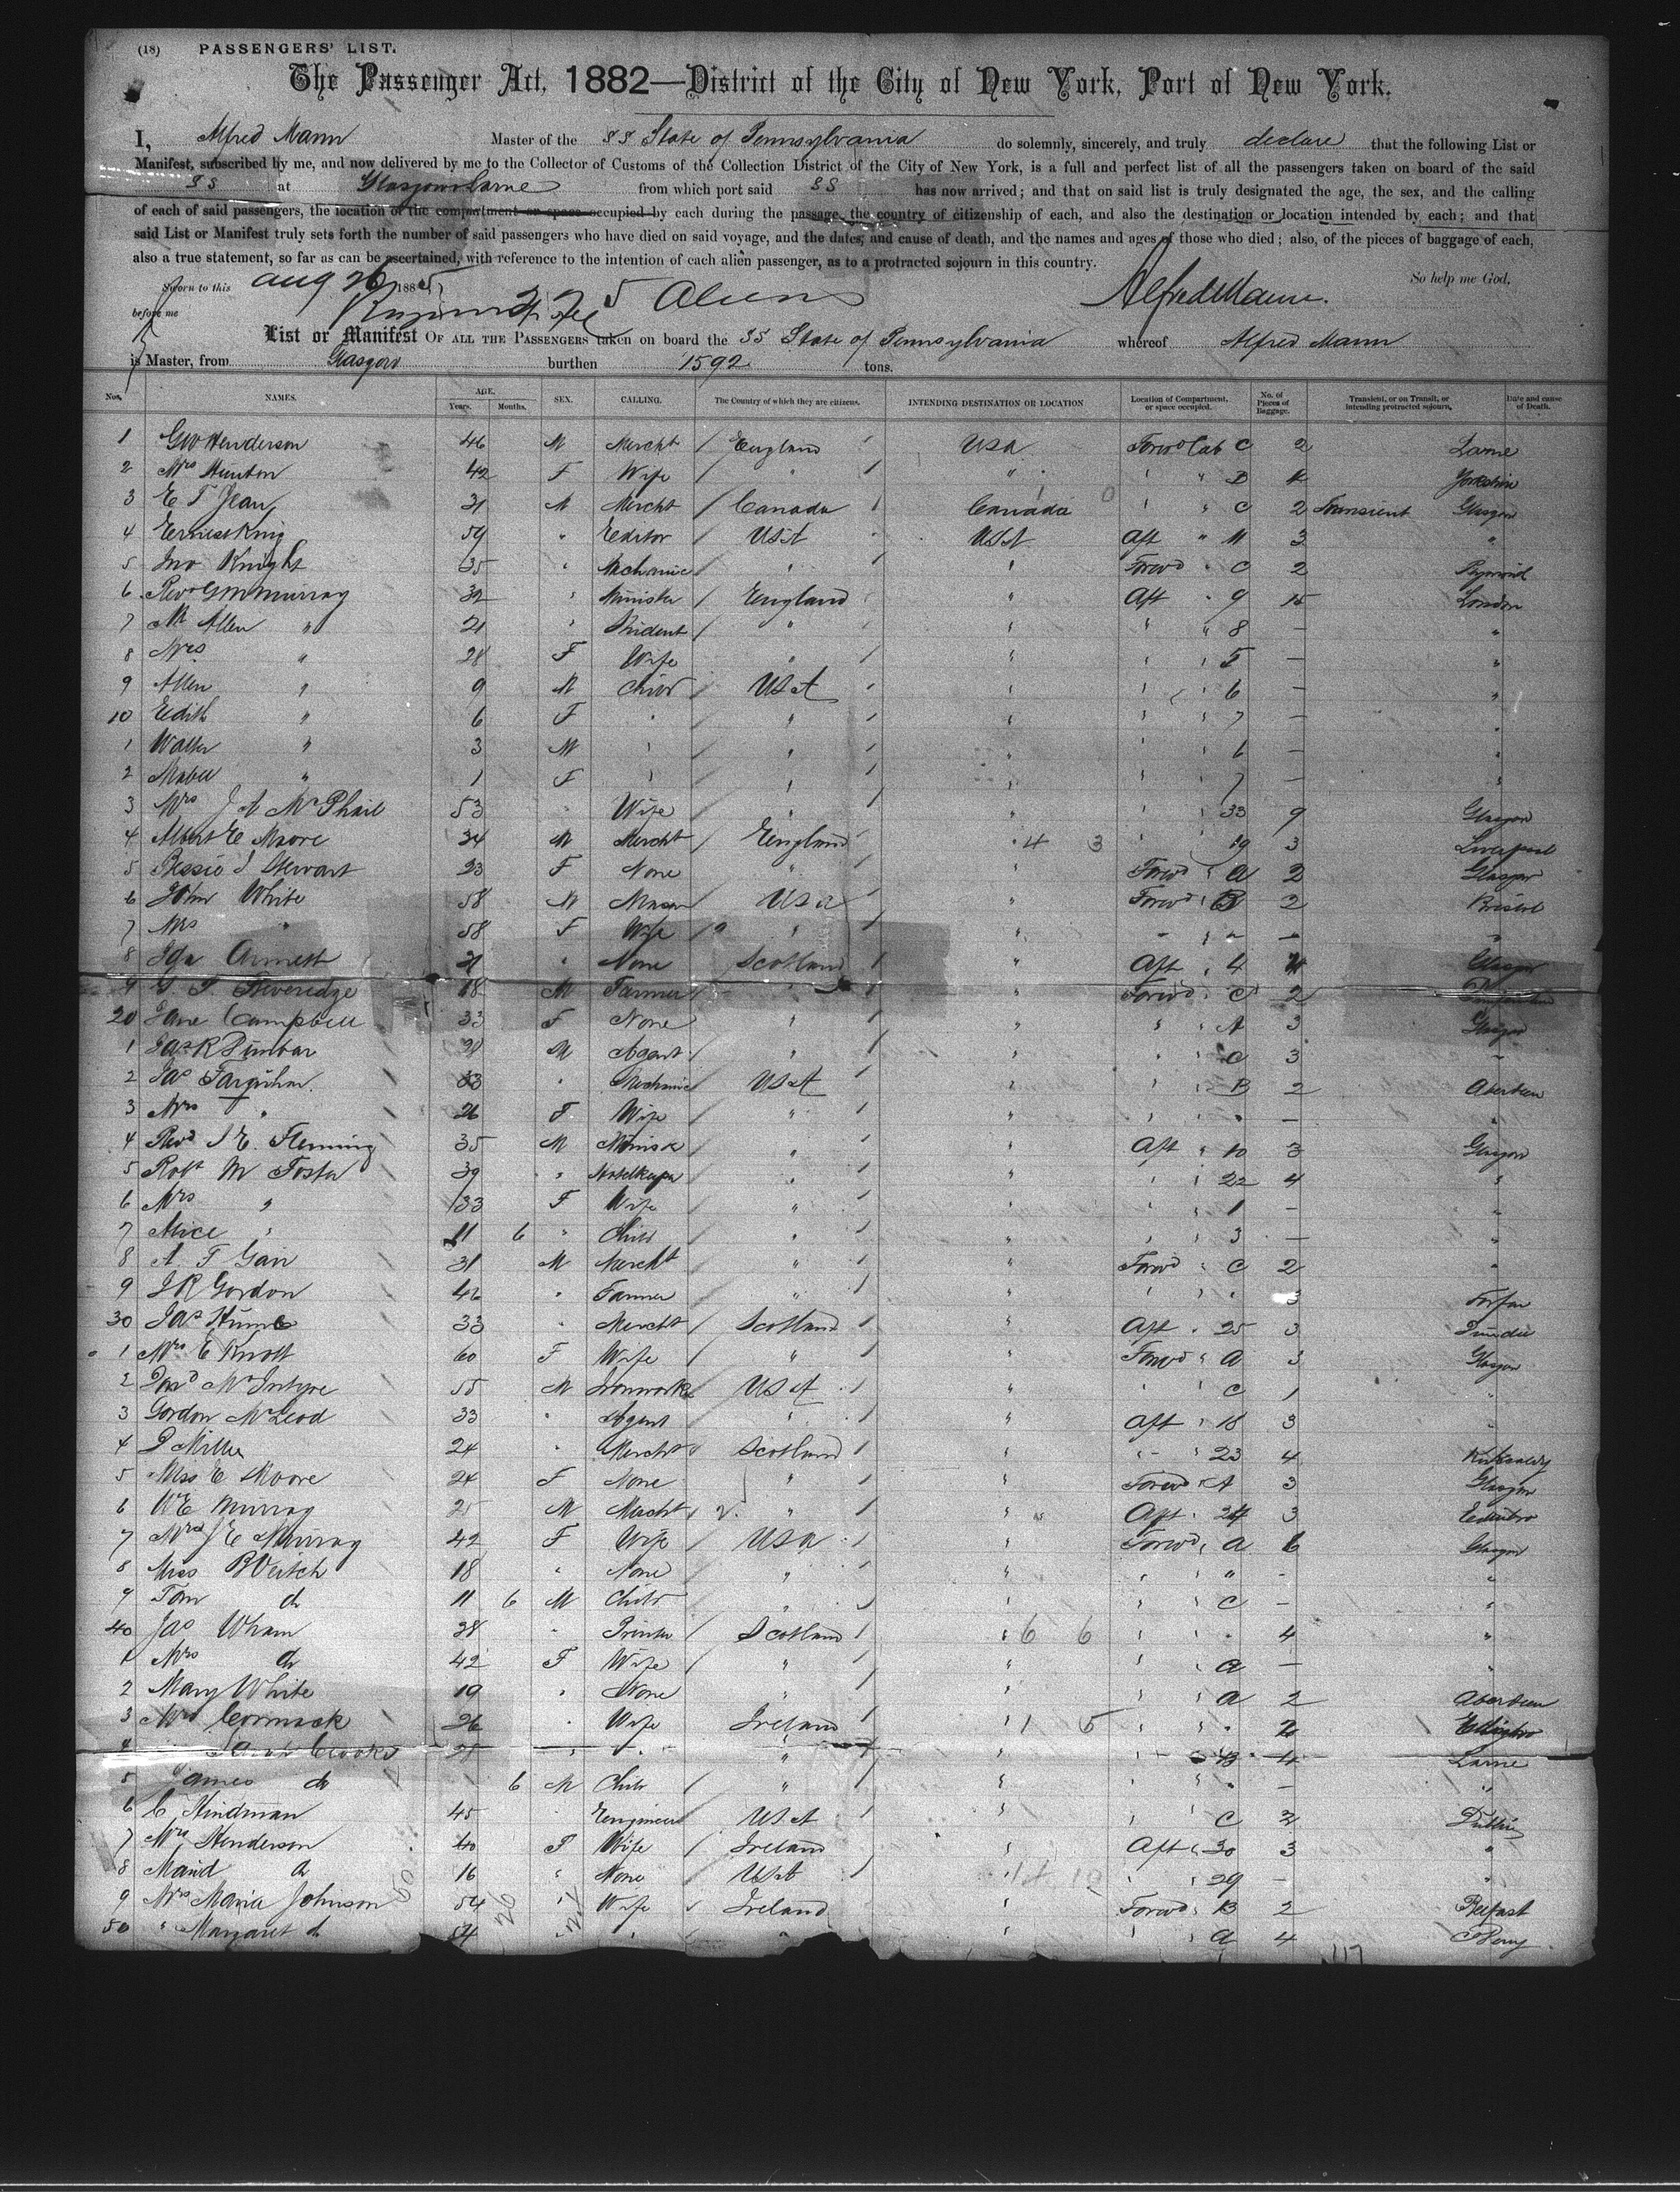 (18) PASSENGERS' LIST.
The Passenger Act, 1882—District of the City of New York, Port of New York.
I, Alfred Mann Master of the SS State of Pennsylvania do solemnly, sincerely, and truly declare that the following List or
Manifest, subscribed by me, and now delivered by me to the Collector of Customs of the Collection District of the City of New York, is a full and perfect list of all the passengers taken on board of the said
SS at Glasgow & Larne from which port said SS has now arrived; and that on said list is truly designated the age, the sex, and the calling
of each of said passengers, the location of the compartment or space occupied by each during the passage, the country of citizenship of each, and also the destination or location intended by each; and that
said List or Manifest truly sets forth the number of said passengers who have died on said voyage, and the dates, and cause of death, and the names and ages of those who died; also, of the pieces of baggage of each,
also a true statement, so far as can be ascertained, with reference to the intention of each alien passenger, as to a protracted sojourn in this country.
Sworn to this Aug 26 1885 Alfred Mann. So help me God,
before me
List or Manifest OF ALL THE PASSENGERS taken on board the SS State of Pennsylvania whereof Alfred Mann
is Master, from Glasgow burthen 1592 tons.
Nos. NAMES. AGE. Years. Months. SEX. CALLING. The Country of which they are citizens. INTENDING DESTINATION OR LOCATION Location of Compartment, or space occupied. No. of Pieces of Baggage. Transient, or on Transit, or intending protracted sojourn. Date and cause of Death.
1 GW Henderson 46 M Mercht England USA Forwd Cab C 2 Larne
2 Mrs Hunton 42 F Wife " " " " B Yorkshire
3 E T Jean 31 M Mercht Canada Canada " " C 2 Transient Glasgow
4 Ernest King 59 " Editor USA USA Aft " M 3 "
5 Jno Knight 35 " Mechanic " " Forwd " C 2
6 Revd GM Murray 32 " Minister England " Aft " 9 15 London
7 M Allen " 21 " Student " " " " 8 — "
8 Mrs " 28 F Wife " " " " 5 — "
9 Allen " 9 M Child USA " " " 6 — "
10 Edith " 6 F " " " " " 7 — "
1 Walter " 3 M " " " " 6 — "
2 Mabel " 1 F " " " " 7 — "
3 Mrs J A McPhail 53 " Wife " " " 33 9 Glasgow
4 Albert E Moore 34 M Mercht England " 4 3 " 19 3 Liverpool
5 Bessie J Stewart 23 F None " " Forwd " A 2 Glasgow
6 John White 58 M Mason USA " Forwd " B 2 Bristol
7 Mrs " 58 F Wife " " " " " — "
8 Ida 21 " None Scotland " Aft " 4 Glasgow
9 Beveredge 18 M Farmer " " Forwd " C 2
20 Jane Campbell 33 F None " " " " A 3 Glasgow
1 Jas R Dunbar M Agent " " " " C 3 "
2 Jas Farquhar 33 " Mechanic USA " " " B 2 Aberdeen
3 Mrs " 26 F Wife " " " " " — "
4 Revd J E. Fleming 35 M Minister " " Aft " 10 3 Glasgow
5 Robt M Foster 39 " Hotelkeeper " " " " 22 4 "
6 Mrs " 33 F Wife " " " " 1 - "
7 Alice " 11 6 " Child " " " " 3 — "
8 A. F Gair 31 M Mercht " " Forwd " C 2 "
9 J R Gordon 46 " Farmer " " " " " 3 Forfar
30 Jas Hume 33 " Mercht Scotland " Aft " 25 3 Dundee
1 Mrs E Knott 60 F Wife " " Forwd " A 3 Glasgow
2 McIntyre 55 M Ironworker USA " " C 1 "
3 Gordon McLeod 33 " Agent " " Aft " 18 3 "
4 D Miller 24 " Mercht Scotland " " " 23 4 Kirkcaldy
5 Miss E Moore 24 F None " " Forwd " A 3 Glasgow
6 WE Murray 25 M Mercht " " Aft " 24 3 Edinbro
7 Mrs J E Murray 42 F Wife USA " Forwd " A 6 Glasgow
8 Miss B Veitch 18 " None " " " " " - "
9 Tom do 11 6 M Child " " " " C - "
40 Jas Wham 38 " Printer Scotland " 6 6 " " 4 "
1 Mrs do 42 F Wife " " " " A — "
2 Mary White 19 " None " " " " A 2 Aberdeen
3 Mrs Cormack 26 " Wife Ireland " 1 5 " " " 2
4 Sarah Crooks " " " " " B 4 Larne
5 James do 6 M Child " " " " " — "
6 C Hindman 45 " Engineer USA " " C 2 Dublin
7 Mrs Henderson 40 F Wife Ireland " Aft " 30 3 "
8 Maud do 16 " None USA " " 29 - "
9 Mrs Maria Johnson 54 " Wife Ireland " Forwd " B 2 Belfast
50 " Margaret do 54 " " " " " " A 4 Derry